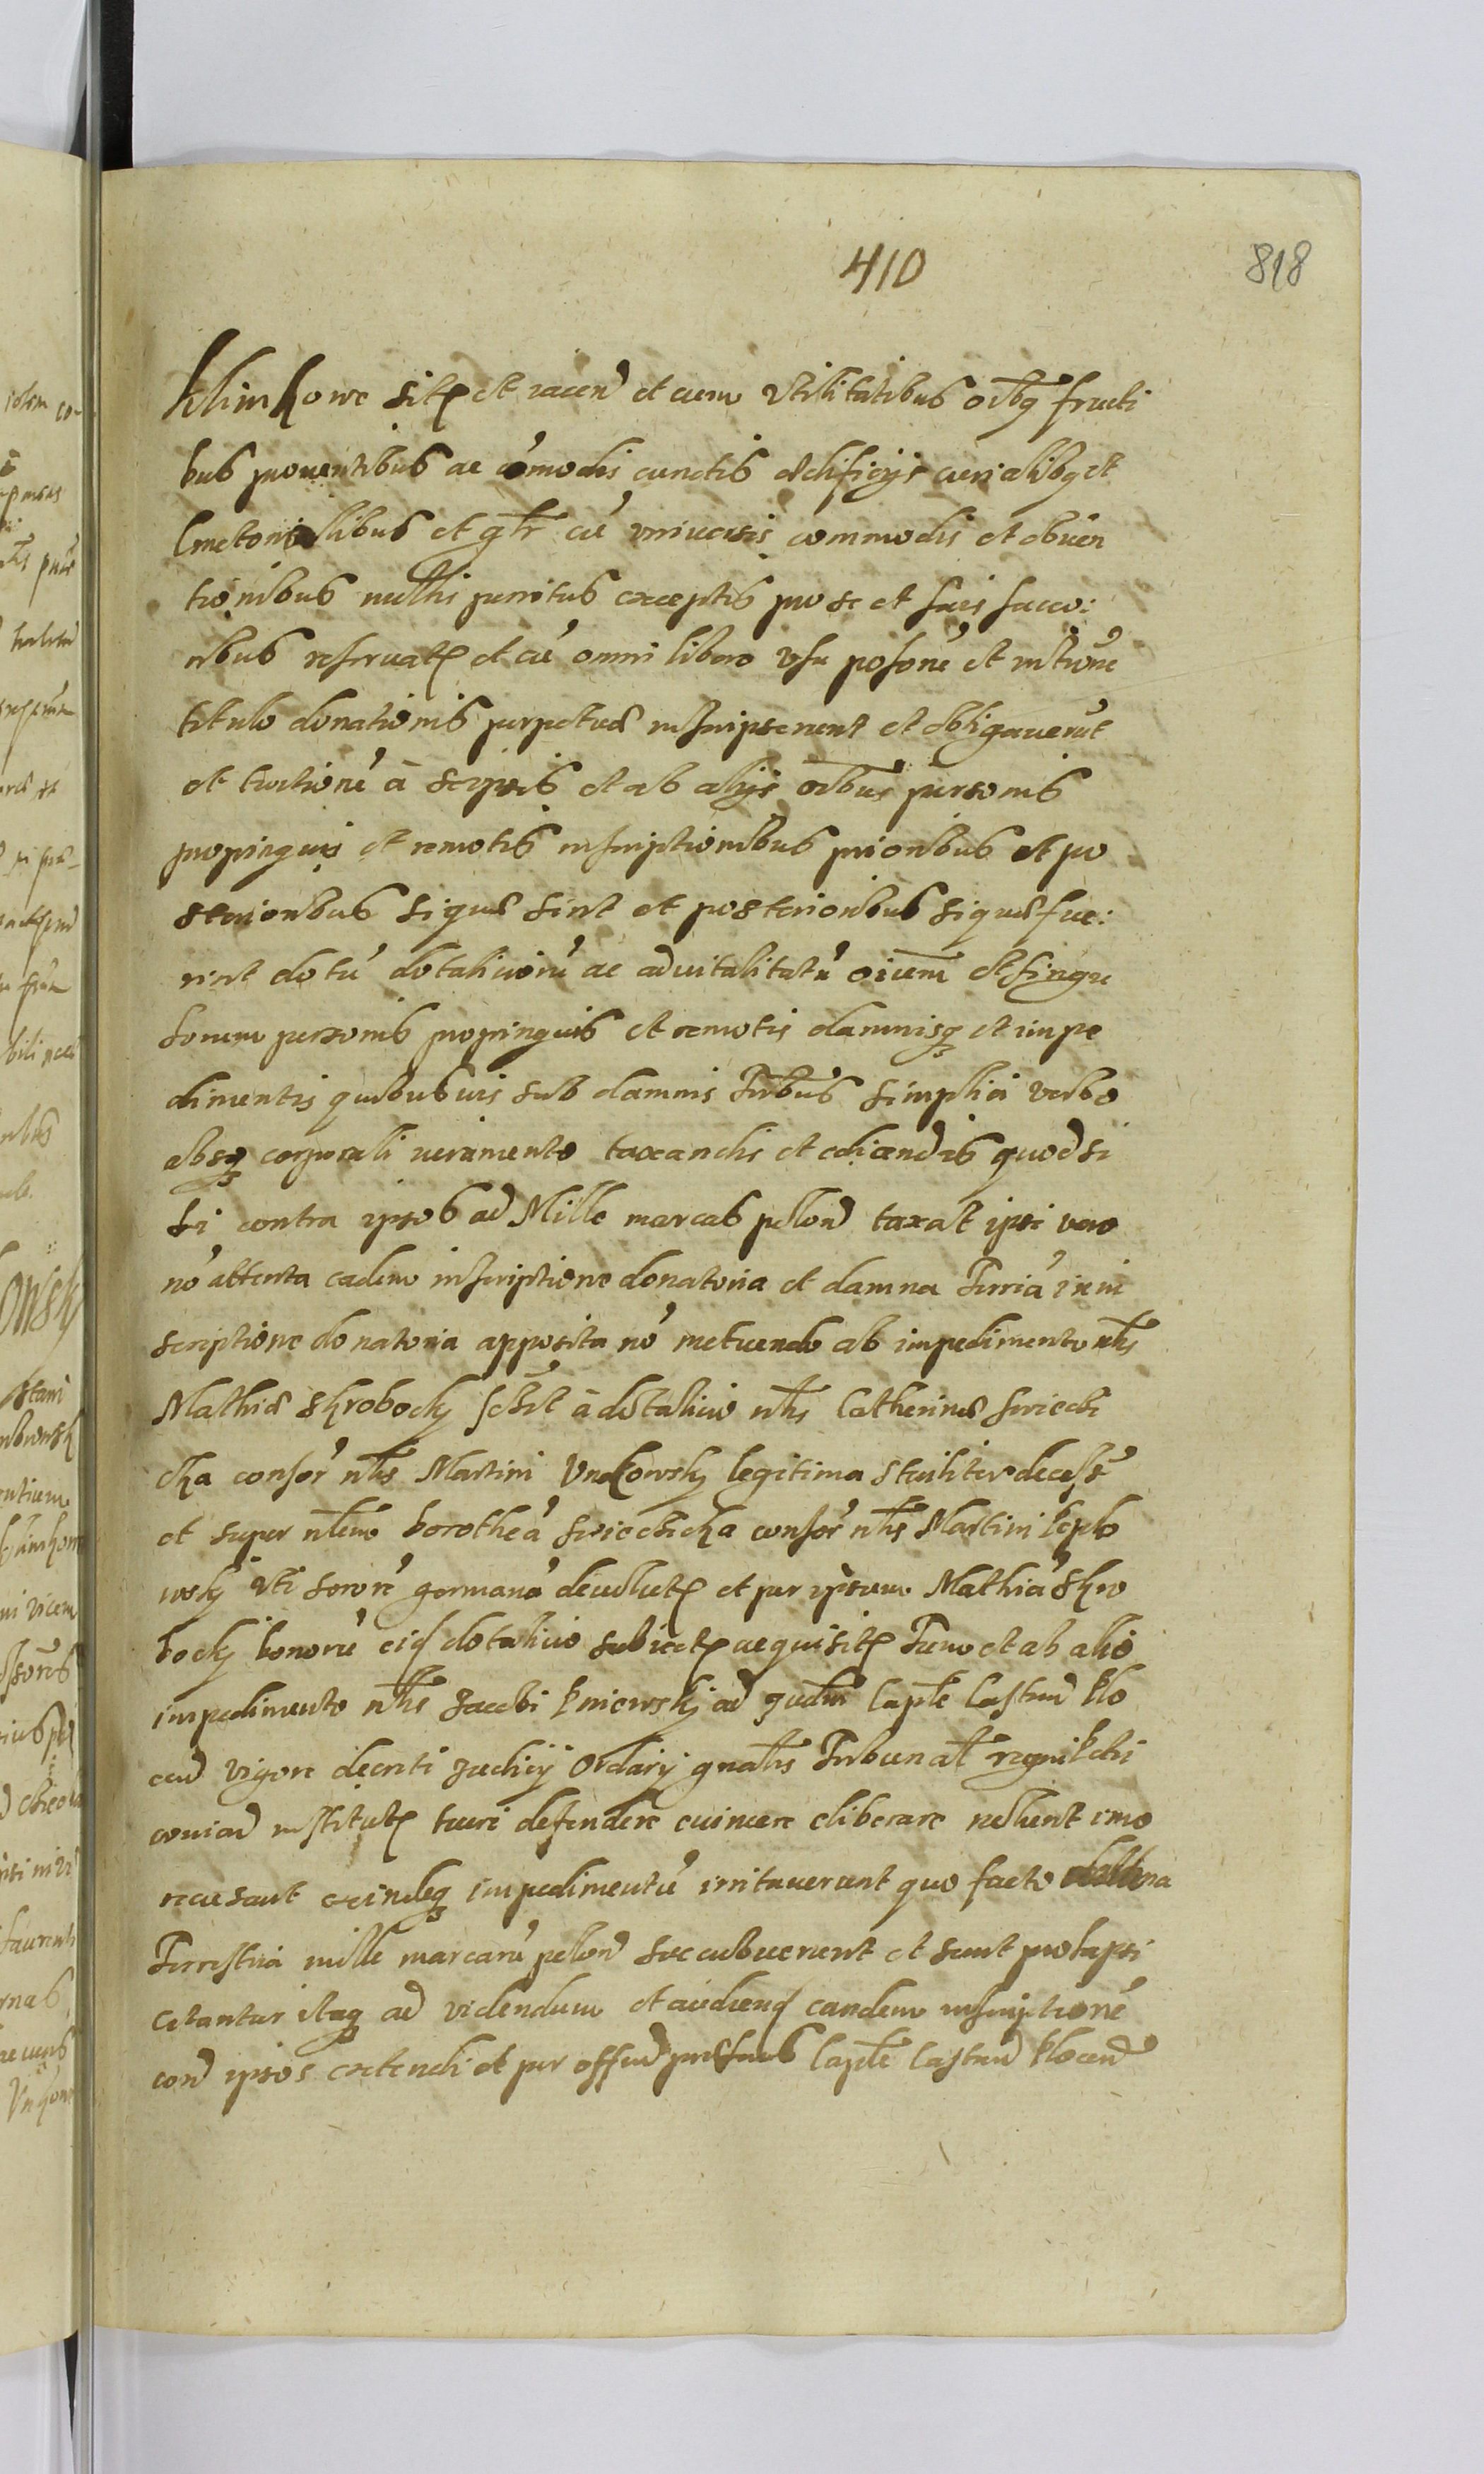 410
818
Klimkowe sitę et iacen et cum vtilitatibus oībq fructi
bus prouentibus ac cōmodis cunctis edificijs curialibq et
Cmetonalibus et gnr cū vniuersis commodis et obuen
tionibus nullis penitus exceptis pro se et suis succo:
ribus reseruatę et cū omni libero vsu posōne et intrōne
titulo donationis perpetuę inscripserunt et obligauerūt
et euictionē à seipsis et ab alijs oībus personis
propinquis et remotis inscriptionibus prioribus et po
sterioribus si quę sint et posterioribus si quę fue:
rint dotū dotaliciorū ac aduitalitatū oīum et singu
lorum personis propinquis et remotis damnisq et impe
dimentis quibusuis sub damnis Trībus simplici verbo
absq corporali iuramento taxandis et edicendis quod si
si contra ipsos ad Mille marcas polon taxat ipsi vero
nō attenta eadem inscriptione donatoria et damna Trrīa in in
scriptione donatoria apposita nō metuendo ab impedimento nlis
Mathię Skrobocky scīlt à dotalicio nlis Catherinę swiecki
cka consor nlis Martini Vnkowsky legitima steriliter decess
et super nlem Dorotheā swiecicka consor nlis Martini leplo
wsky Vti sororē germanā deuolutę et per ipsum Mathiā Skro
bocky bonorū eid dotalicio subiectę acquisitę Tum et ab alio
impedimento nlis Jacobi kniewsky ad qudm Caple Castrn Plo
cen vigore decreti Judicij Ordarij gnalis Tribunal regni Petri
couien institutę tueri defendere euincere eliberare noluerunt imo
recusant exindeq impedimentū irritauerunt quo facto damna
Terrestria mille marcarū polon succubuerunt et sunt prolapsi
citantur itaq ad videndum et audiend eandem inscriptionē
con ipsos extendi et per offiū Caple Castrn Plocen